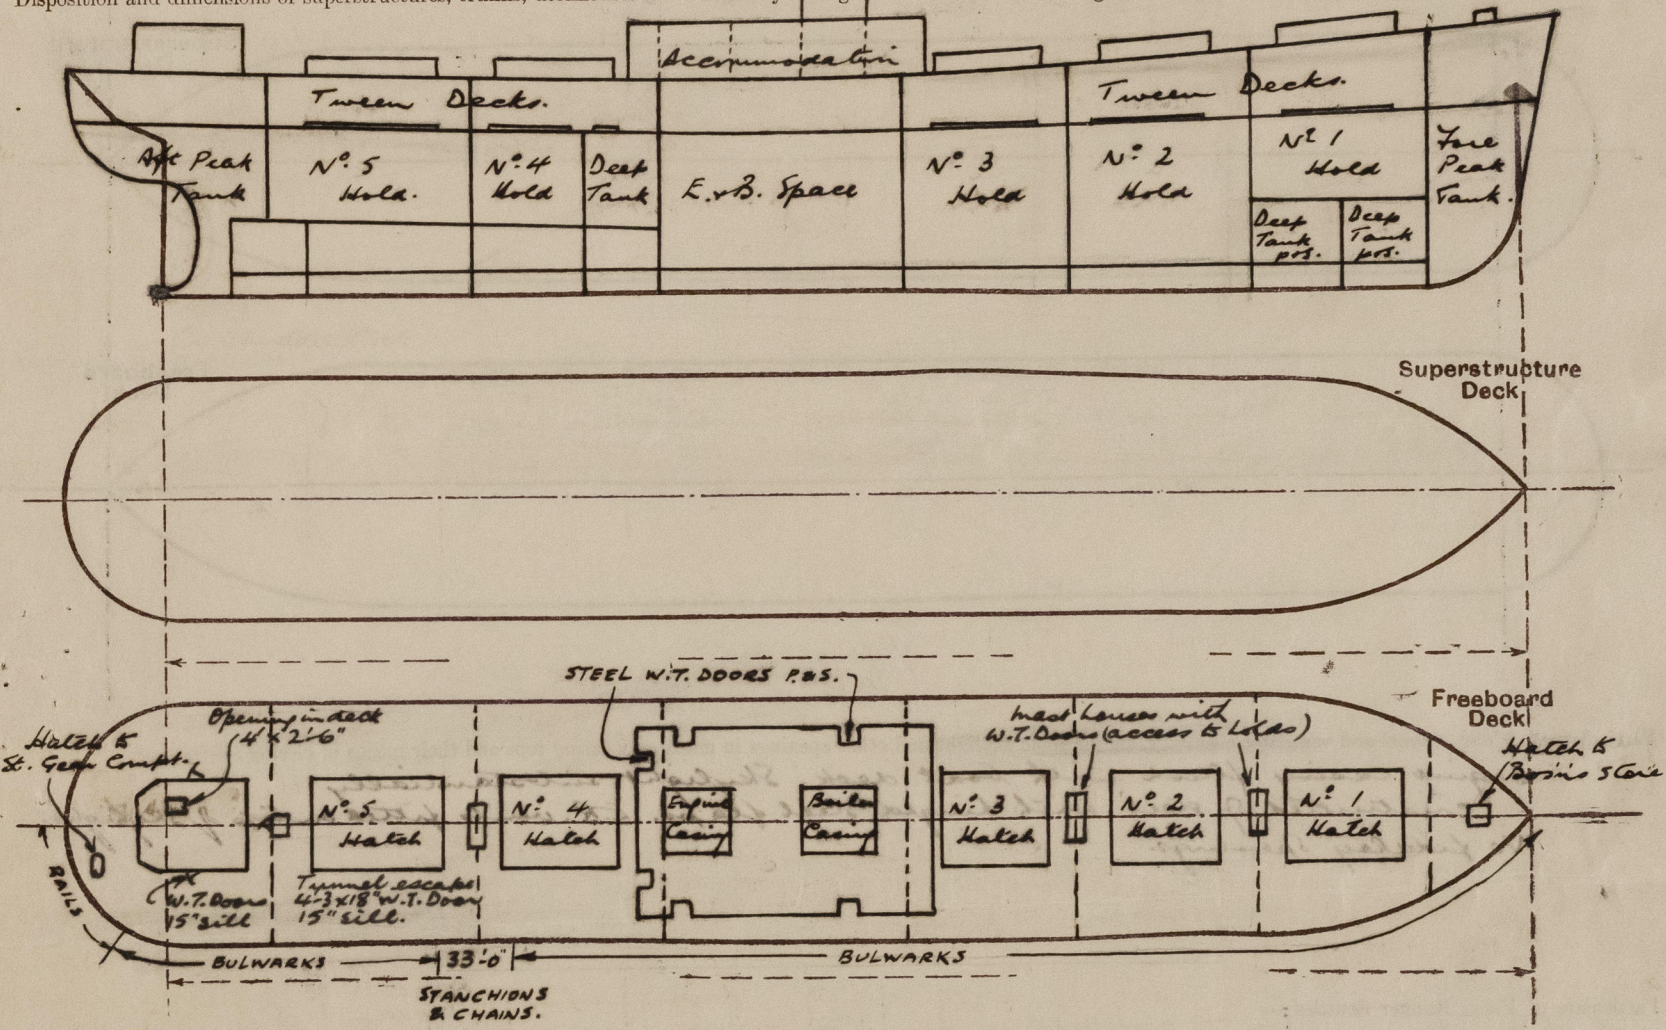 Disposition and dimensions of superstructures, trunks,
Accommodation
Tween Decks.
Tween Decks.
Aft Peak
Tank
Nº 5
Hold.
Nº 4
Hold
Deep
Tank
E. & B. Space
Nº 3
Hold
Nº 2
Hold
Nº 1
Hold
Fore
Peak
Tank.
Deep
Tank
p&s.
Deep
Tank
p&s.
Superstructure
Deck
STEEL W.T. DOORS P.&S.
Freeboard
Deck
Opening in deck
4' x 2'-6"
Hatch to
St. Gear Compt.
mast houses with
W.T. Doors (access to holds)
Hatch to
Bosins Store
Nº 5
Hatch
Nº 4
Hatch
Engine
Casing
Boiler
Casing
Nº 3
Hatch
Nº 2
Hatch
Nº 1
Hatch
RAILS
W.T. Doors
15" sill
Tunnel escape
4-3x18" W.T. Door
15" sill.
BULWARKS
33'-0"
BULWARKS
STANCHIONS
& CHAINS.